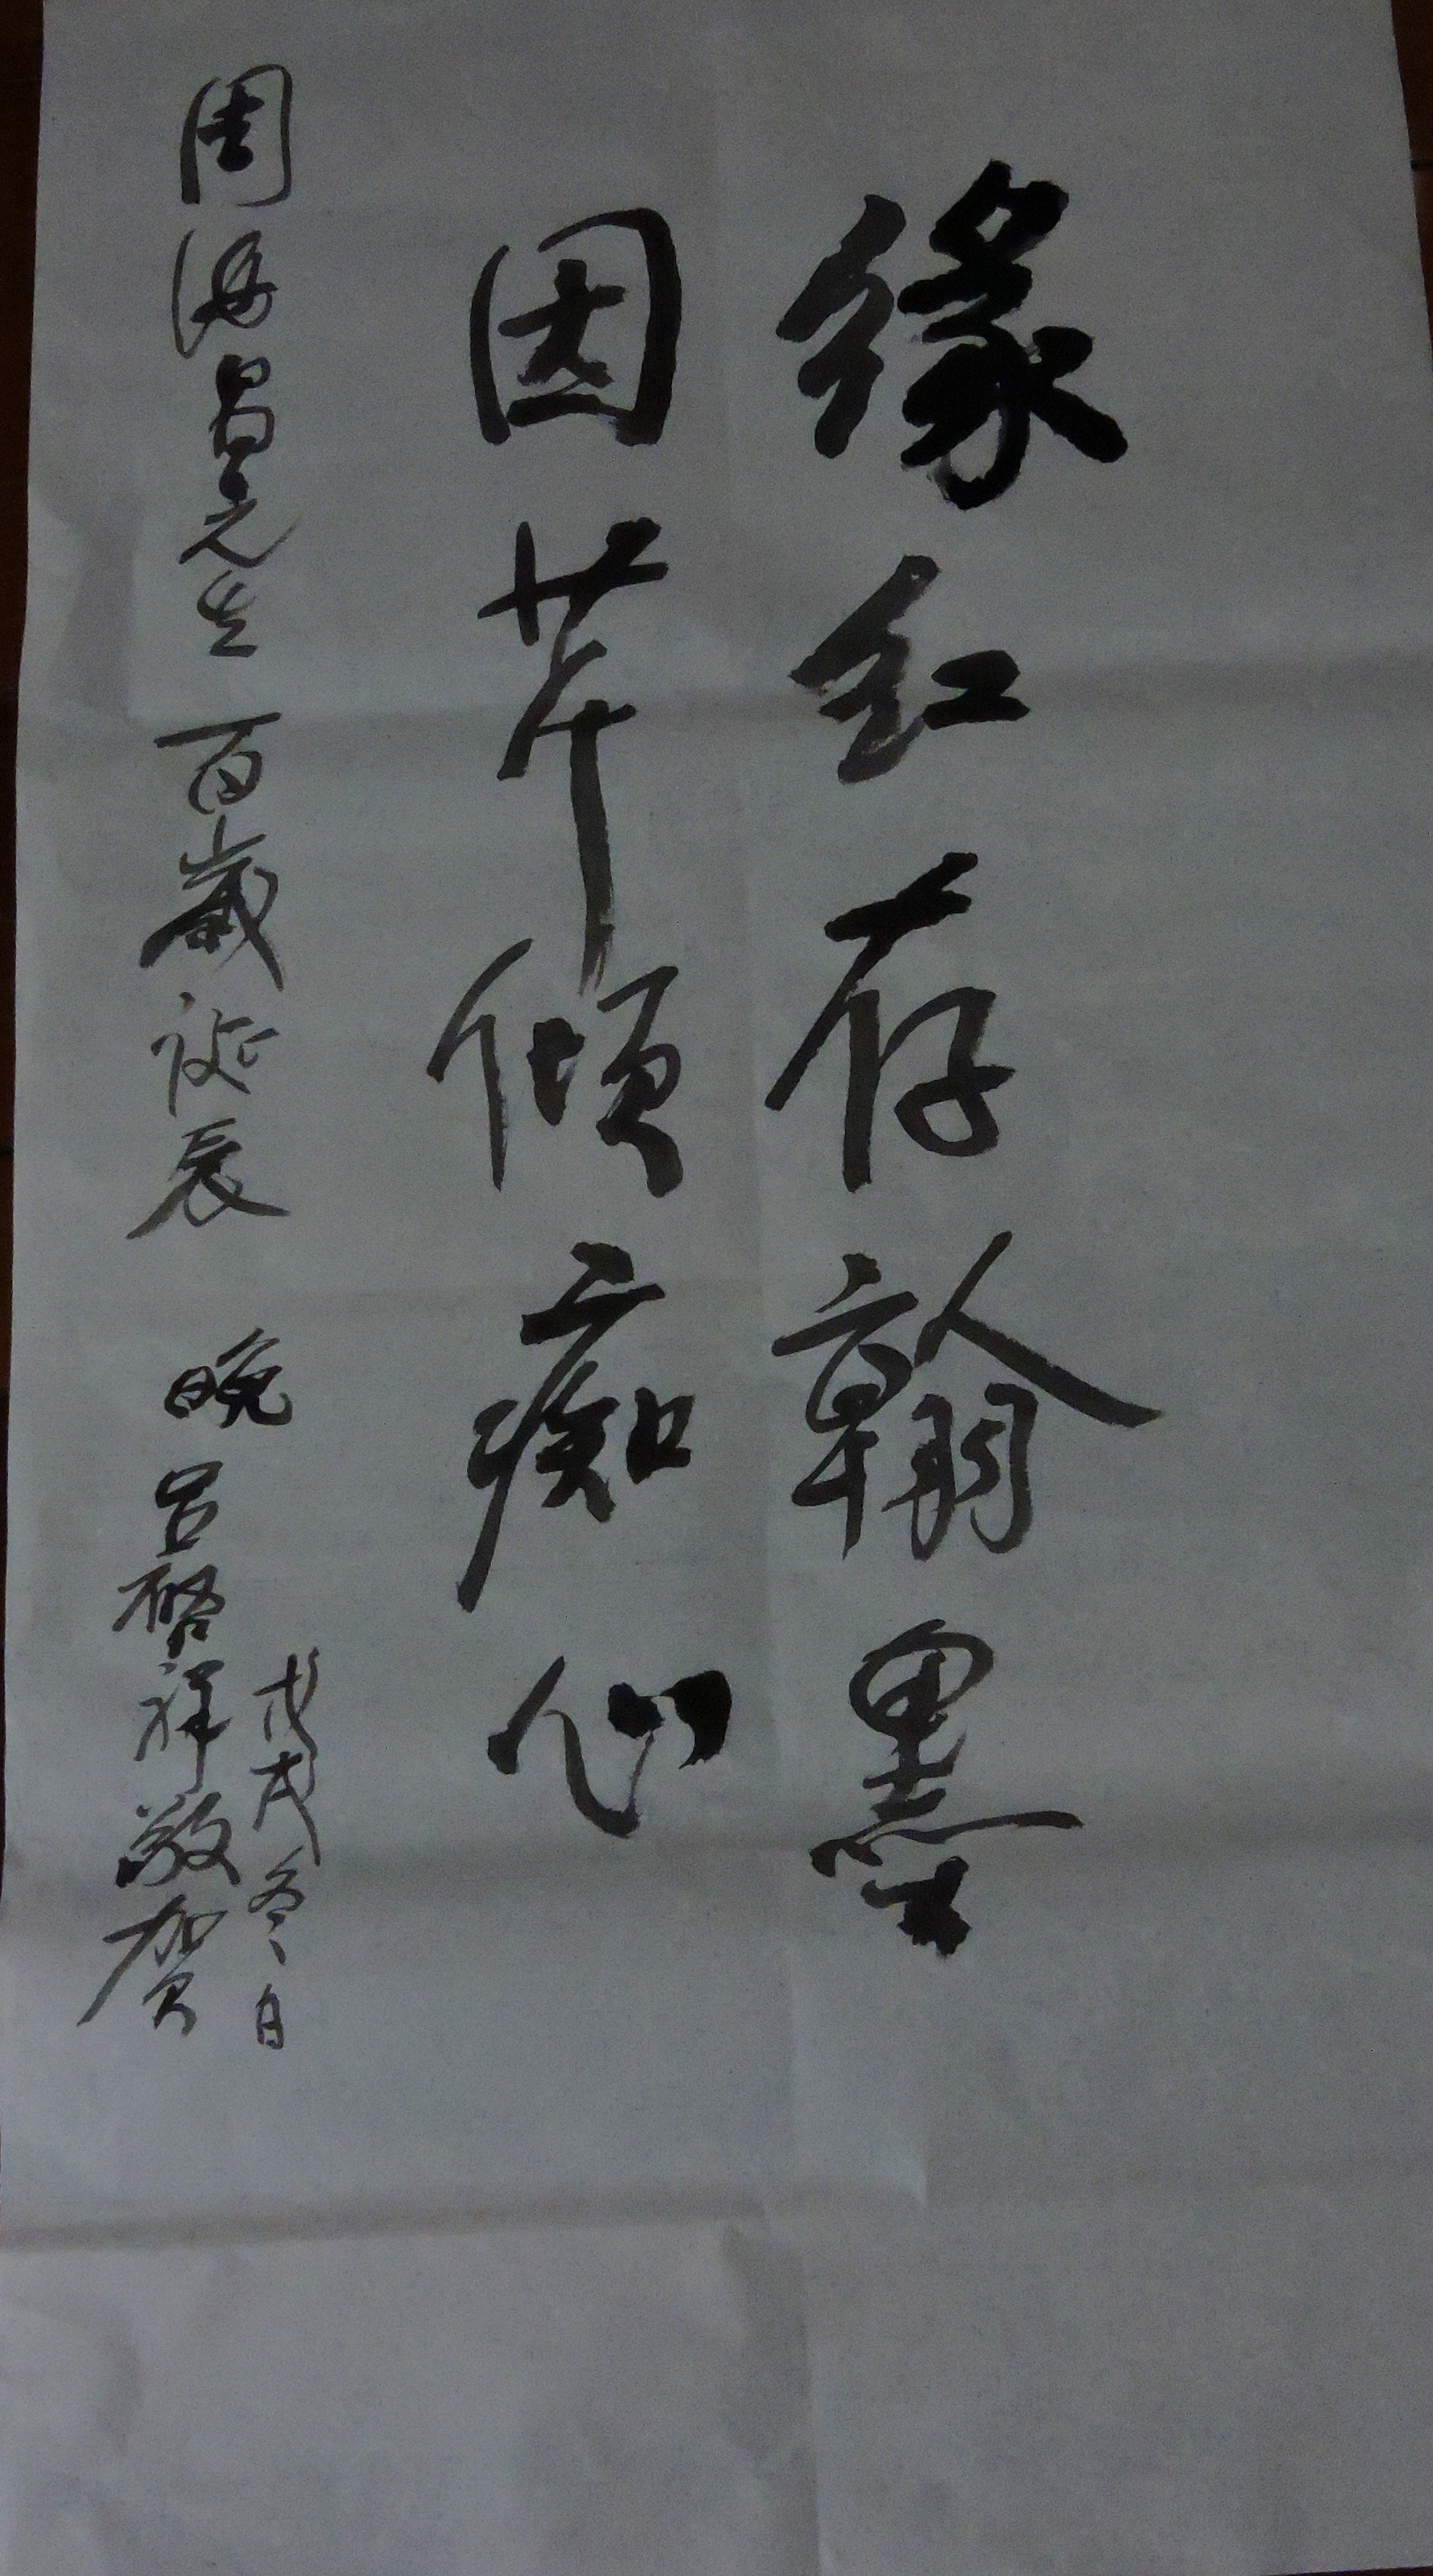 缘红存翰墨
因芹倾痴心
周汝昌先生百歲诞辰 晚吕启祥敬贺
戊戌冬日